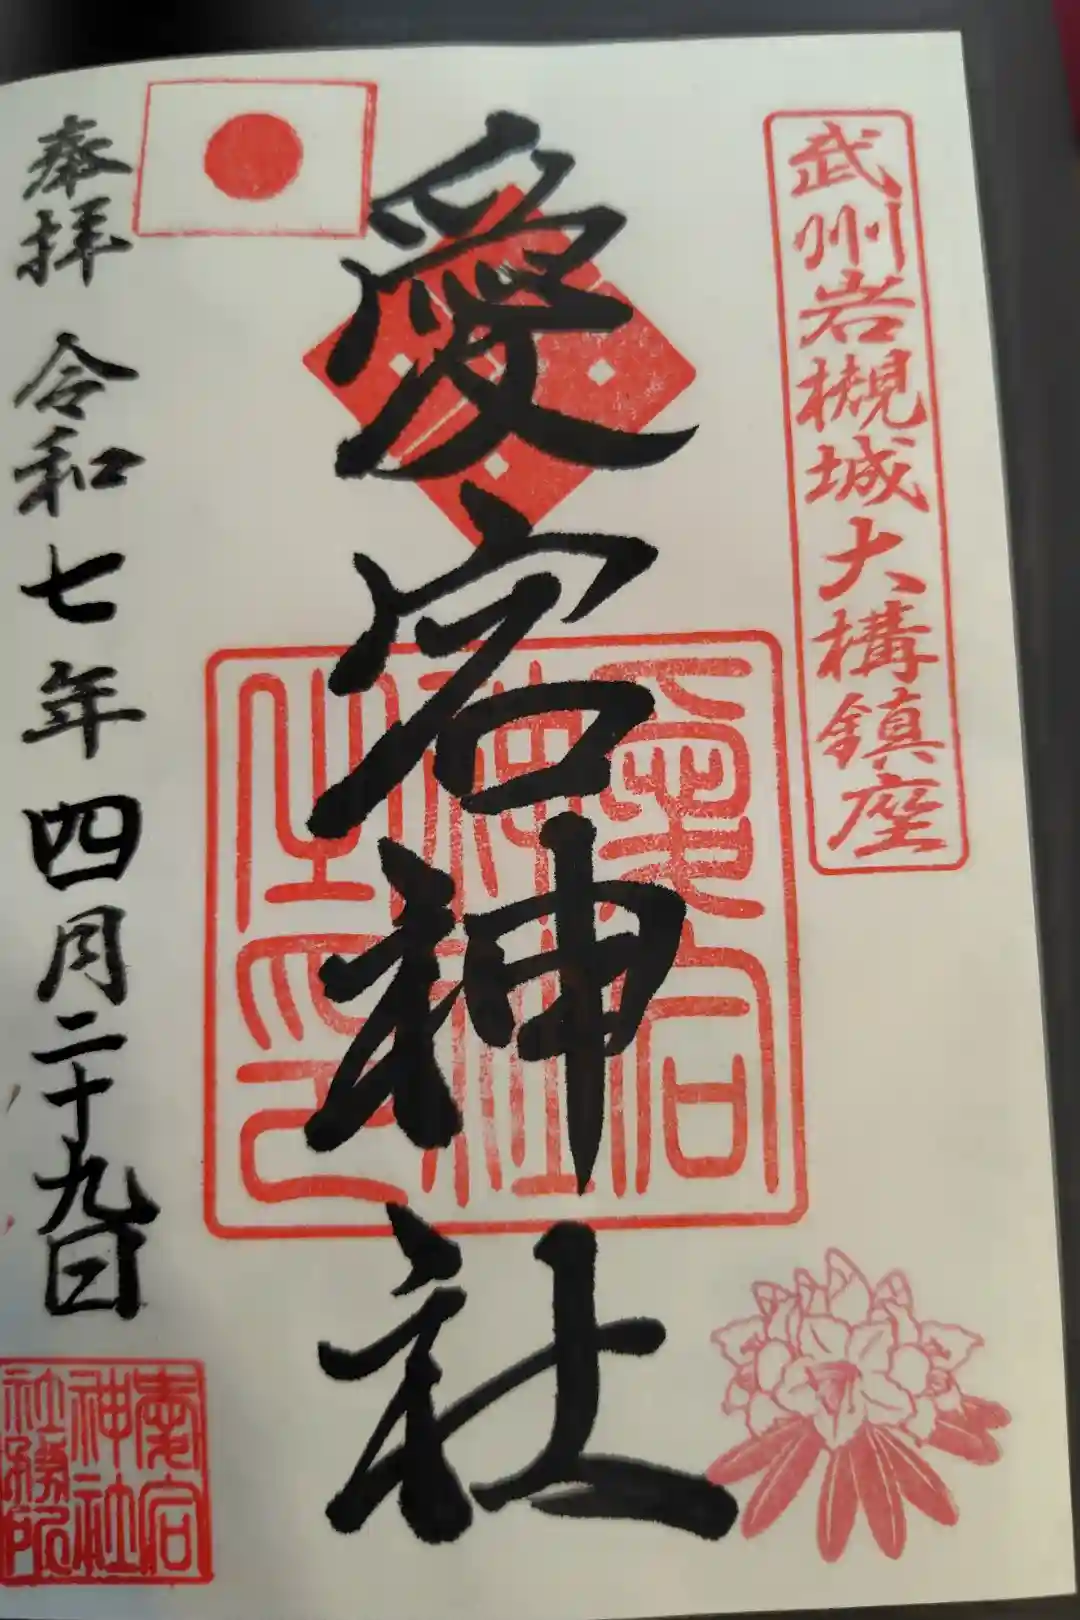 武州岩槻城大構鎮座
愛宕神社
愛宕
神社
之印
奉拝 令和七年四月二十九日
愛宕
神社
社務所